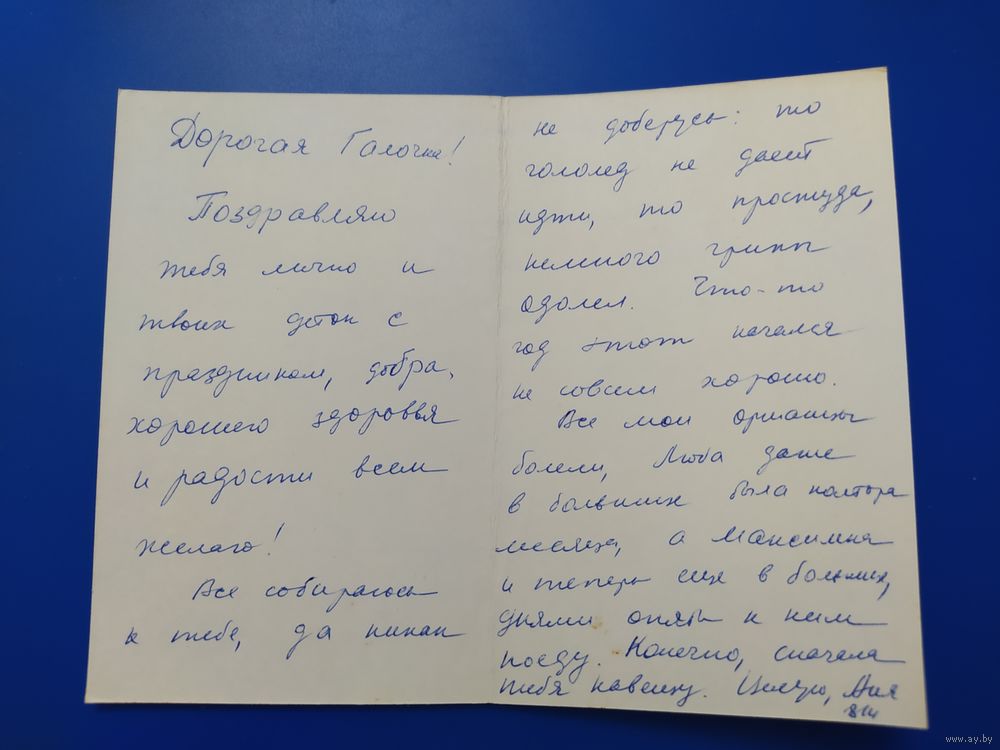 Дорогая Галочка!
Поздравляю
тебя лично и
твоих деток с
праздником, добра,
хорошего здоровья
и радости всем
желаю!
Все собираюсь
к тебе, да никак
не доберусь: то
гололед не дает
идти, то простуда,
немного грипп
одолел. Что-то
год этот начался
не совсем хорошо.
Все мои оршанцы
болели, Люба даже
в больнице была полтора
месяца, а Максимка
и теперь еще в больнице,
днями опять к ним
поеду. Конечно, сначала
тебя навещу. Целую, Аня
8/III
www.ay.by